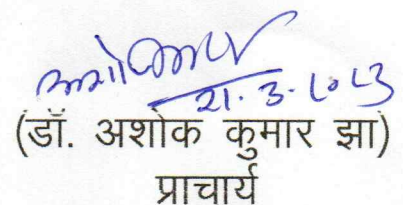 21.3.2023
(डॉ. अशोक कुमार झा)
प्राचार्य